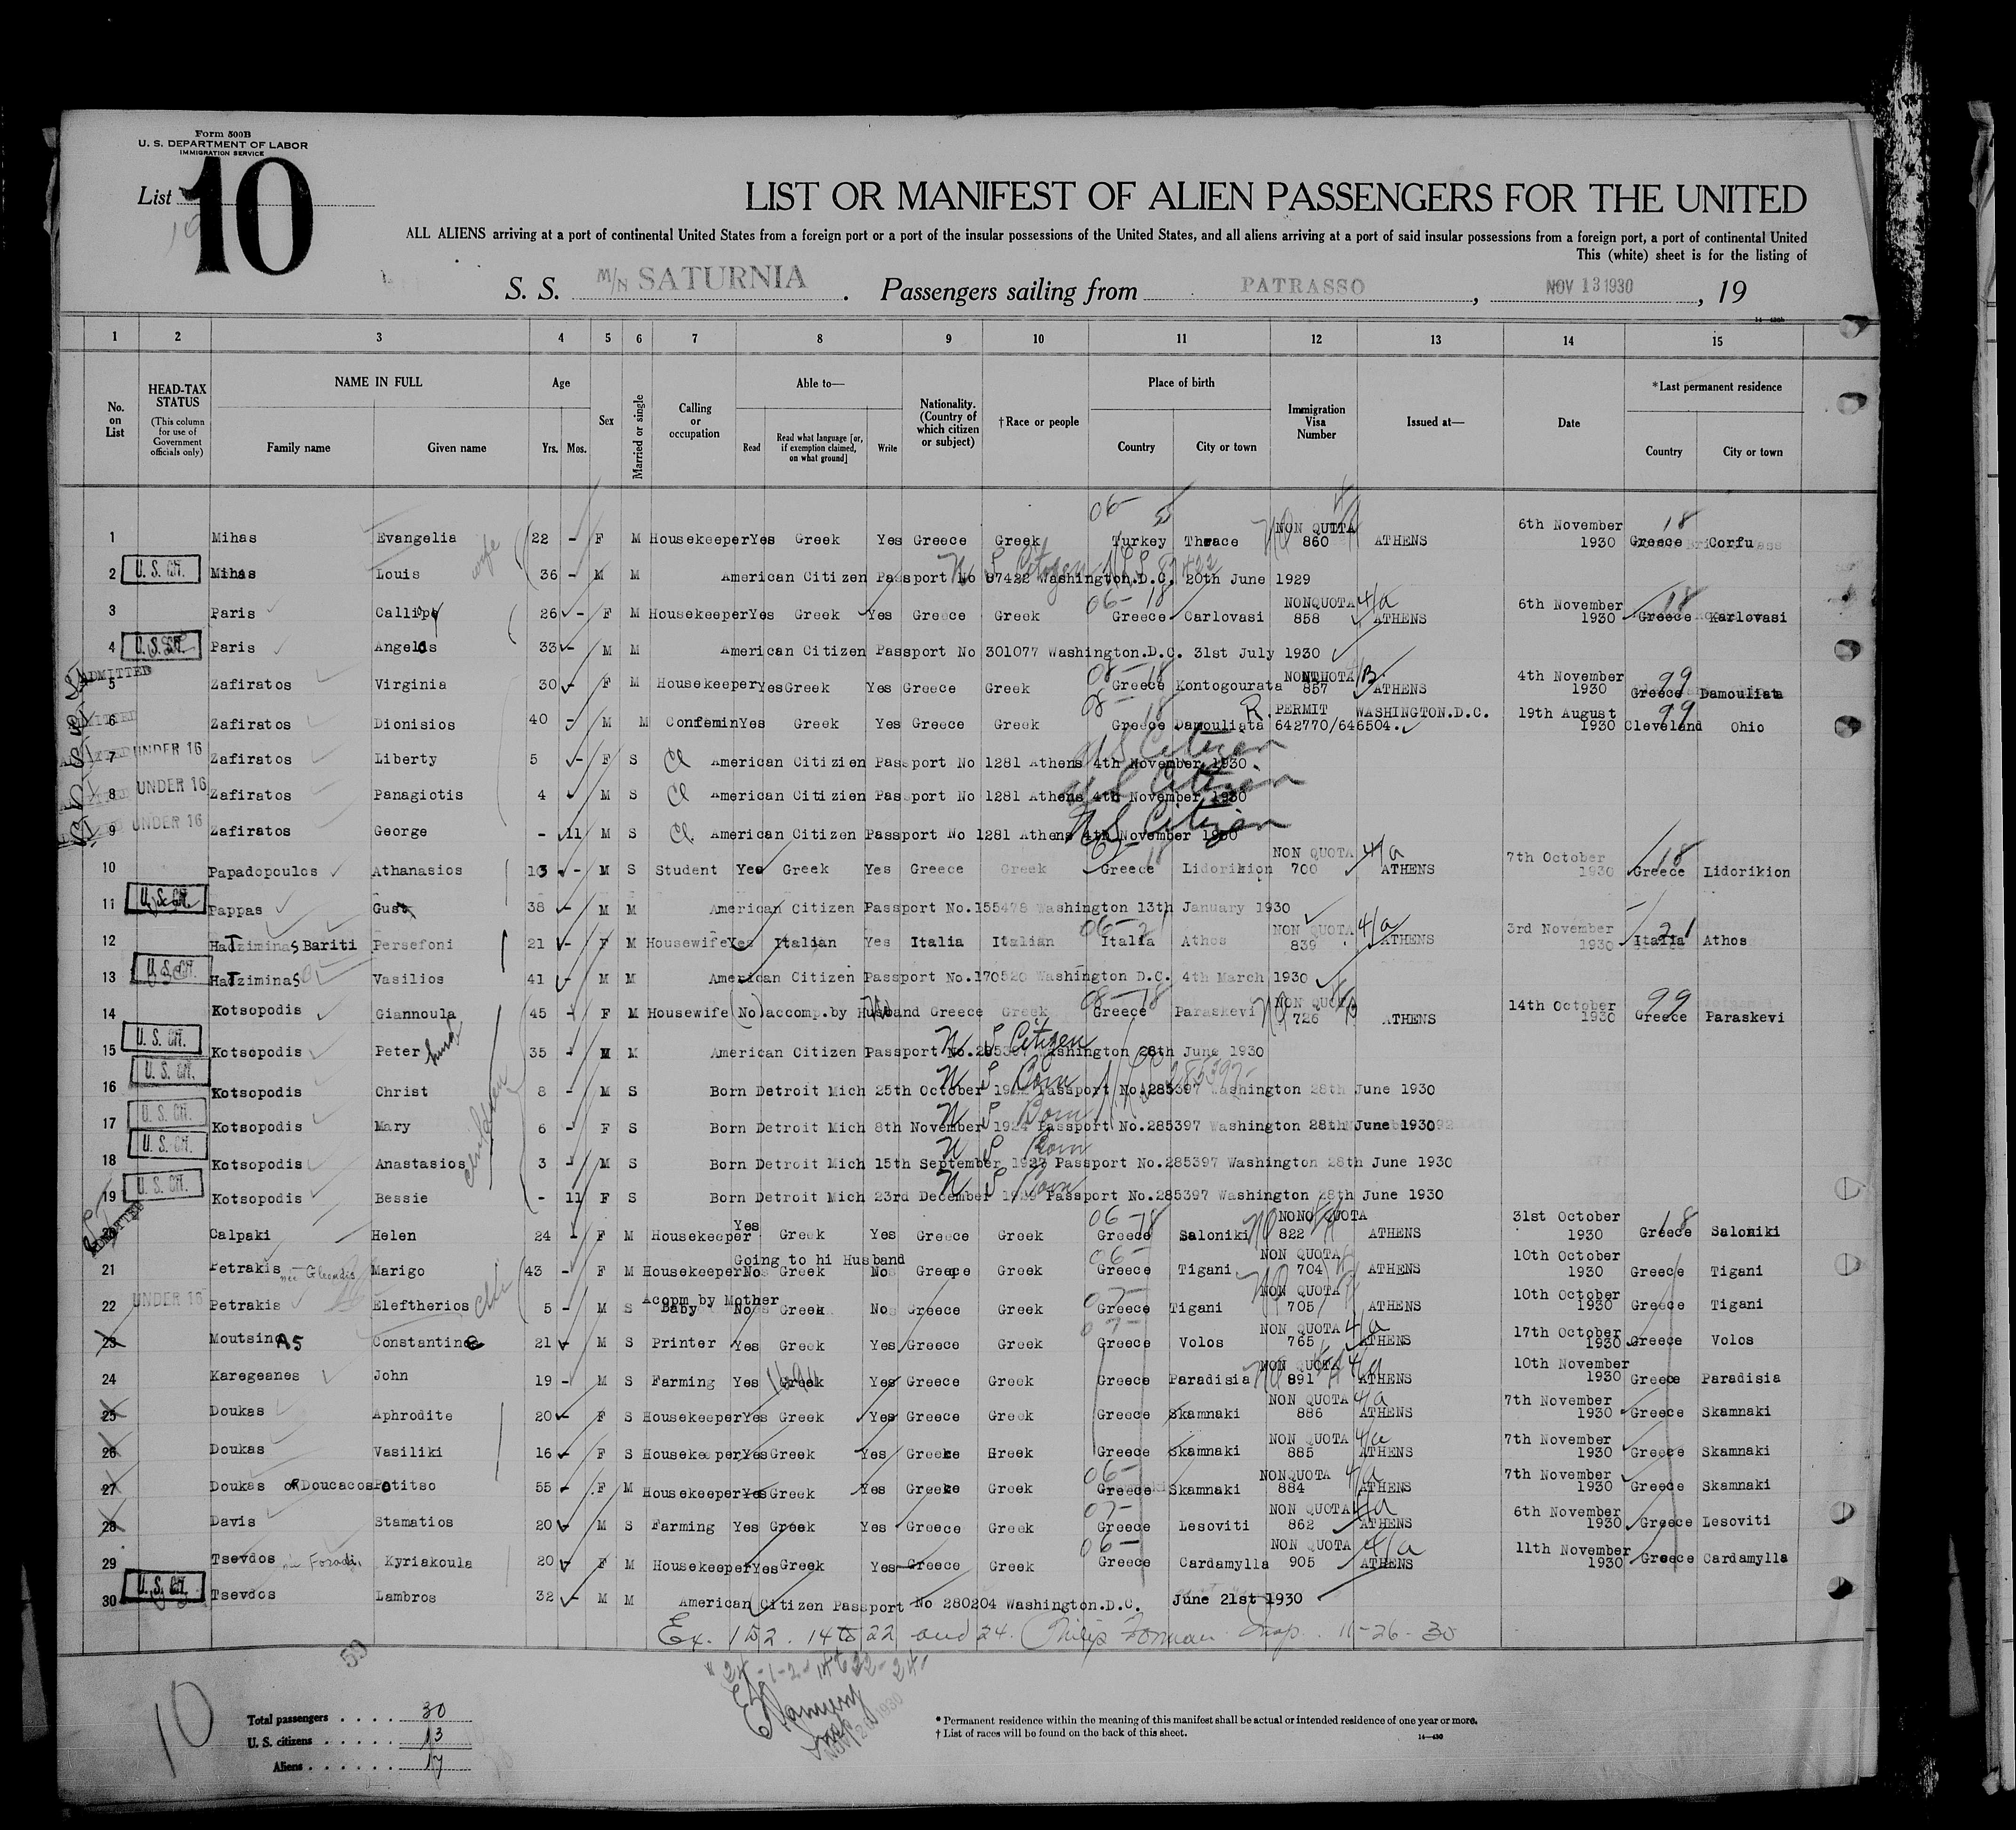 Form 500B
U. S. DEPARTMENT OF LABOR
IMMIGRATION SERVICE
List 10
LIST OR MANIFEST OF ALIEN PASSENGERS FOR THE UNITED
ALL ALIENS arriving at a port of continental United States from a foreign port or a port of the insular possessions of the United States, and all aliens arriving at a port of said insular possessions from a foreign port, a port of continental United
This (white) sheet is for the listing of
S. S. M/N SATURNIA . Passengers sailing from PATRASSO , NOV 13 1930 , 19
1 2 3 4 5 6 7 8 9 10 11 12 13 14 15
No. on List HEAD-TAX STATUS (This column for use of Government officials only) NAME IN FULL Family name Given name Age Yrs. Mos. Sex Married or single Calling or occupation Able to— Read Read what language [or, if exemption claimed, on what ground] Write Nationality. (Country of which citizen or subject) †Race or people Place of birth Country City or town Immigration Visa Number Issued at— Date *Last permanent residence Country City or town
1 Mihas Evangelia wife 22 - F M Housekeeper Yes Greek Yes Greece Greek 06- Turkey Thrace NON QUOTA 860 ATHENS 6th November 1930 18 Greece Corfu
2 U. S. Cit. Mihas Louis 36 - M M American Citizen Passport No 87422 Washington.D.C. 20th June 1929 U S Citizen
3 Paris Callipy 26 - F M Housekeeper Yes Greek Yes Greece Greek 06- 18 Greece Carlovasi NONQUOTA 4/a 858 ATHENS 6th November 1930 18 Greece Karlovasi
4 U. S. Cit. Paris Angelos 33 - M M American Citizen Passport No 301077 Washington.D.C. 31st July 1930
ADMITTED 5 Zafiratos Virginia 30 - F M Housekeeper Yes Greek Yes Greece Greek 08- 18 Greece Kontogourata NONQUOTA 857 ATHENS 4th November 1930 99 Greece Damouliata
6 Zafiratos Dionisios 40 - M M Confemin Yes Greek Yes Greece Greek 08- 18 Greece Damouliata R. PERMIT 642770/646504. WASHINGTON.D.C. 19th August 1930 99 Cleveland Ohio
7 UNDER 16 Zafiratos Liberty 5 - F S Cl American Citizien Passport No 1281 Athens 4th November 1930 U S Citizen
8 UNDER 16 Zafiratos Panagiotis 4 M S Cl American Citizien Passport No 1281 Athens 4th November 1930 U S Citizen
9 UNDER 16 Zafiratos George - 11 M S Cl American Citizen Passport No 1281 Athens 4th November 1930 U S Citizen
10 Papadopoulos Athanasios 13 - M S Student Yes Greek Yes Greece Greek 18 Greece Lidorikion NON QUOTA 4/a 700 ATHENS 7th October 1930 18 Greece Lidorikion
11 U. S. Cit. Pappas Gust 38 - M M American Citizen Passport No.155478 Washington 13th January 1930
12 HaTziminaS Bariti Persefoni 21 - F M Housewife Yes Italian Yes Italia Italian 06- 21 Italia Athos NON QUOTA 4/a 839 ATHENS 3rd November 1930 21 Italia Athos
13 U. S. Cit. HaTziminaS Vasilios 41 - M M American Citizen Passport No.170520 Washington D.C. 4th March 1930
14 Kotsopodis Giannoula 45 - F M Housewife (No) accomp.by Husband No Greece Greek 08-18 Greece Paraskevi NON QUOTA 726 ATHENS 14th October 1930 99 Greece Paraskevi
15 U. S. Cit. Kotsopodis Peter husb 35 - M M American Citizen Passport No.285397 Washington 28th June 1930 U S Citizen
16 U. S. Cit. Kotsopodis Christ 8 - M S Born Detroit Mich 25th October 1922 Passport No.285397 Washington 28th June 1930 U S Born 285397
17 U. S. Cit. Kotsopodis Mary children 6 - F S Born Detroit Mich 8th November 1924 Passport No.285397 Washington 28th June 1930 U S Born
18 U. S. Cit. Kotsopodis Anastasios 3 - M S Born Detroit Mich 15th September 1927 Passport No.285397 Washington 28th June 1930 U S Born
19 U. S. Cit. Kotsopodis Bessie - 11 F S Born Detroit Mich 23rd December 1929 Passport No.285397 Washington 28th June 1930 U S Born
20 ADMITTED Calpaki Helen 24 - F M Housekeeper Yes Greek Yes Greece Greek 06-18 Greece Saloniki NONQ QUOTA 822 ATHENS 31st October 1930 18 Greece Saloniki
21 Petrakis Marigo 43 - F M Housekeeper Going to hi Husband No Greek No Greece Greek 06- Greece Tigani NON QUOTA 704 ATHENS 10th October 1930 Greece Tigani
22 UNDER 16 Petrakis Eleftherios 5 - M S Acopm by Mother Baby No Greek No Greece Greek 07- Greece Tigani NON QUOTA 705 ATHENS 10th October 1930 Greece Tigani
23 MoutsinAS Constantine 21 M S Printer Yes Greek Yes Greece Greek 07- Greece Volos NON QUOTA 4/a 765 ATHENS 17th October 1930 Greece Volos
24 Karegeanes John 19 - M S Farming Yes Greek Yes Greece Greek Greece Paradisia NON QUOTA 4/a 891 ATHENS 10th November 1930 Greece Paradisia
25 Doukas Aphrodite 20 - F S Housekeeper Yes Greek Yes Greece Greek Greece Skamnaki NON QUOTA 4/a 886 ATHENS 7th November 1930 Greece Skamnaki
26 Doukas Vasiliki 16 - F S Housekeeper Yes Greek Yes Greece Greek Greece Skamnaki NON QUOTA 4/a 885 ATHENS 7th November 1930 Greece Skamnaki
27 Doukas oR Doucacos Potitso 55 - F M Housekeeper Yes Greek Yes Greece Greek 06- Greece Skamnaki NONQUOTA 4/a 884 ATHENS 7th November 1930 Greece Skamnaki
28 Davis Stamatios 20 M S Farming Yes Greek Yes Greece Greek 07- Greece Lesoviti NON QUOTA 4/a 862 ATHENS 6th November 1930 Greece Lesoviti
29 Tsevdos Kyriakoula 20 - F M Housekeeper Yes Greek Yes Greece Greek 06- Greece Cardamylla NON QUOTA 4/a 905 ATHENS 11th November 1930 Greece Cardamylla
30 U. S. Cit. Tsevdos Lambros 32 - M M American Citizen Passport No 280204 Washington.D.C. June 21st 1930
Ex. 1 to 2. 14 to 22 and 24. Philip Forman Insp. 11-26-30
10
Total passengers . . . . 30
U. S. citizens . . . . . 13
Aliens . . . . . . 17
* Permanent residence within the meaning of this manifest shall be actual or intended residence of one year or more.
† List of races will be found on the back of this sheet.
14—430